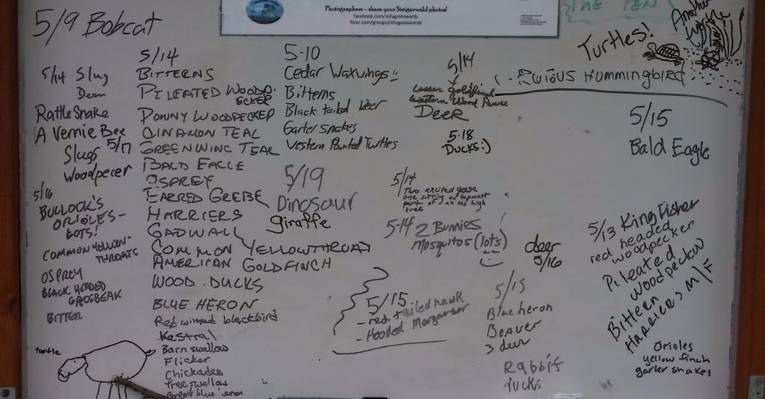 Photographers - share your Steigerwald photos!
facebook.com/refugestewards
flickr.com/groups/refugestewards
5/9 Bobcat
5/14 Slug
Deer
Rattle Snake
A Vernie Bee
Slugs 5/17
Woodpecer
5/16
BULLOCK'S
ORIOLES -
LOTS!
COMMON YELLOW-
THROATS
OSPREY
BLACK HEADED
GROSBEAK
BITTER
turtle
5/14
BITTERNS
PILEATED WOODP
ECKER
DOWNY WOODPECKER
CINAMON TEAL
GREENWING TEAL
BALD EAGLE
OSPREY
EARRED GREBE
HARRIERS
GADWALL
COMMON YELLOWTHROAD
AMERICAN GOLDFINCH
WOOD DUCKS
BLUE HERON
Red winged blackbird
Kestral
Barn swallow
Flicker
Chickadee
Tree swallow
Great blue heron
5-10
Cedar Waxwings
Bitterns
Black tailed deer
Garter snakes
Western Painted Turtles
5/19
Dinosaur
giraffe
5/14
Lesser Goldfinch
Western Wood Peewee
DEER
5-18
DUCKS:)
5/14
Two excited geese
one sitting on topmost
part of oak high
tree
5-14 2 Bunnies
Mosquitos (lots)
deer
5/16
5/15
- red tailed hawk
- Hooded Merganser
5/15
Blue heron
Beaver
3 deer
Rabbits
Ducks
Turtles!
Another
- RUFOUS HUMMINGBIRD
5/15
Bald Eagle
5/13 King Fisher
red headed
woodpecker
Pileated
woodpecker
Bitteen
HARRIERS M/F
Orioles
yellow finch
garter snakes